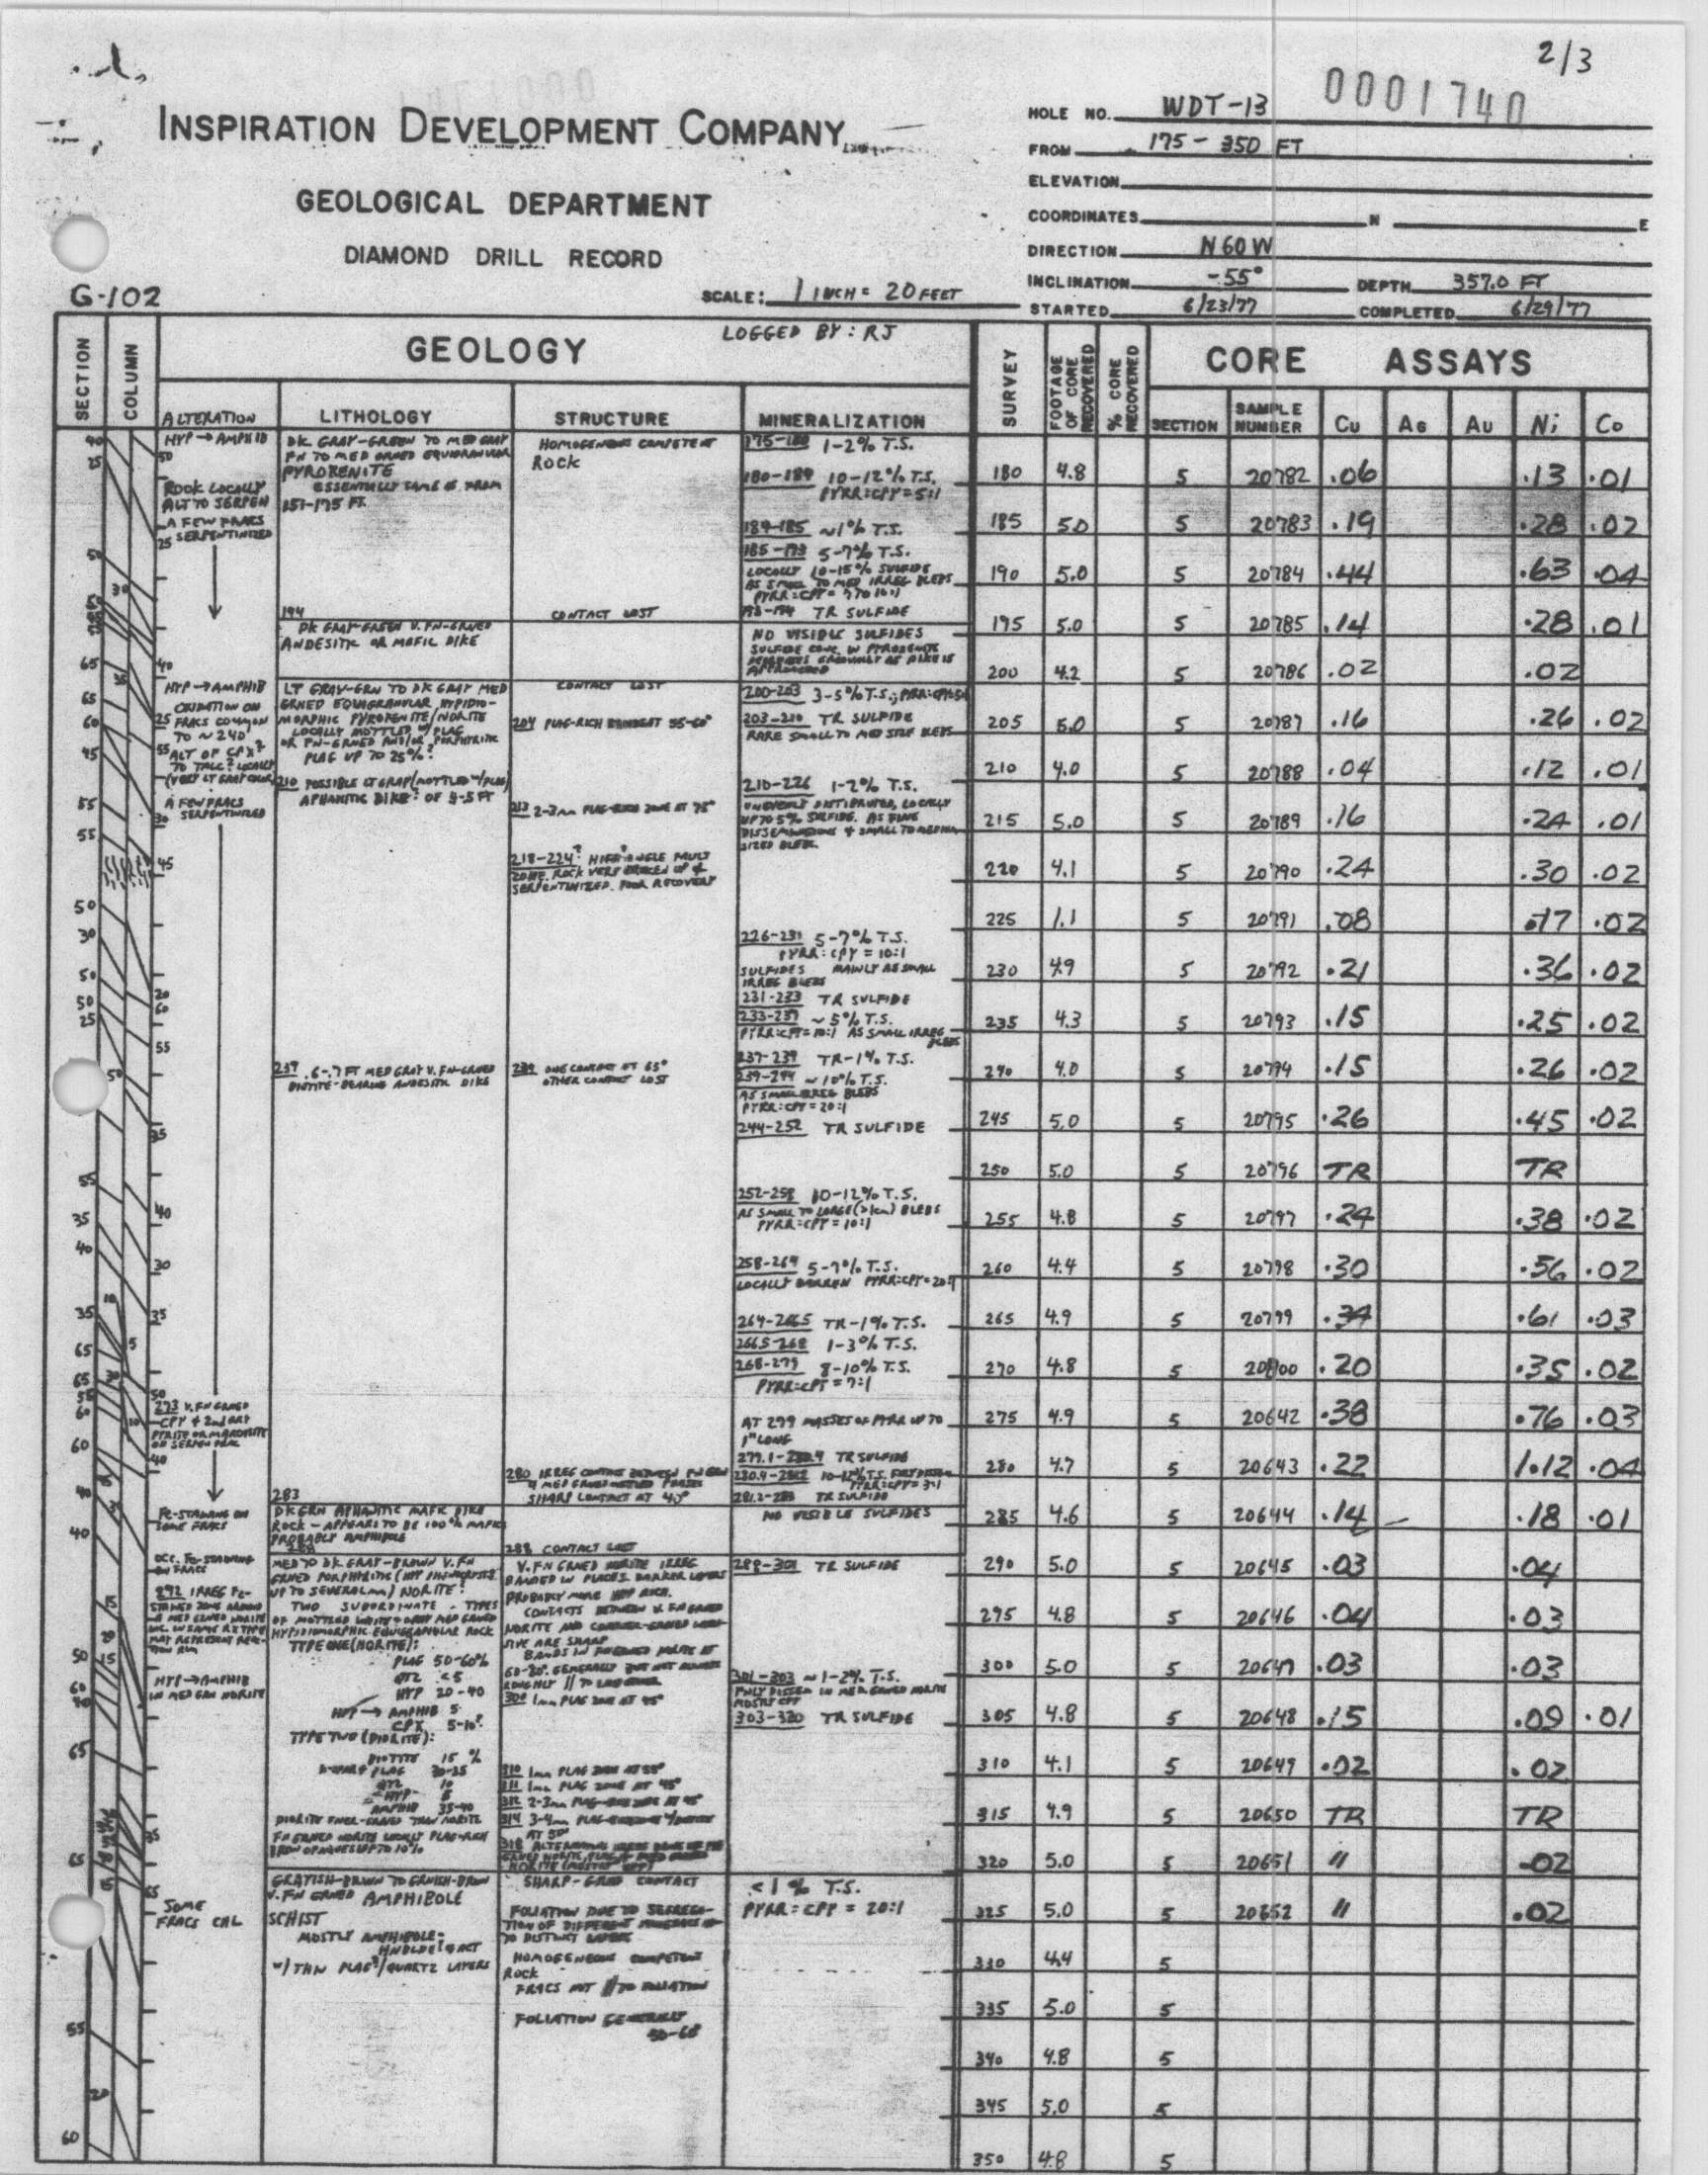 2/3
0001740
INSPIRATION DEVELOPMENT COMPANY
GEOLOGICAL DEPARTMENT
DIAMOND DRILL RECORD
G-102
SCALE: 1 INCH = 20 FEET
HOLE NO. WDT-13
FROM 175 - 350 FT
ELEVATION
COORDINATES N E
DIRECTION N 60 W
INCLINATION -55° DEPTH 357.0 FT
STARTED 6/23/77 COMPLETED 6/29/77
SECTION COLUMN GEOLOGY LOGGED BY: RJ SURVEY FOOTAGE OF CORE RECOVERED % CORE RECOVERED CORE ASSAYS
ALTERATION LITHOLOGY STRUCTURE MINERALIZATION SECTION SAMPLE NUMBER Cu AG AU Ni Co
HYP → AMPHIB
ROCK LOCALLY
ALT TO SERPEN
A FEW FRACS
SERPENTINIZED
HYP → AMPHIB
OXIDATION ON
FRACS COMMON
TO ~ 240'
ALT OF CPX?
TO TALC? LOCALLY
(VERY LT GRAY COLOR)
A FEW FRACS
SERPENTINIZED
273 V. FN GRNED
CPY + 2ndARY
PYRITE OR MARCASITE
ON SERPEN FRAC
FE-STAINING ON
SOME FRACS
OCC. FE-STAINING
ON FRACS
292 IRREG FE-
HYP → AMPHIB
IN MED GRN NORITE
SOME
FRACS CAL
DK GRAY-GREEN TO MED GRAY
FN TO MED GRNED EQUIGRANULAR
PYROXENITE
ESSENTIALLY SAME AS FROM
151-175 FT.
194
DK GRAY-GREEN V. FN-GRNED
ANDESITIC OR MAFIC DIKE
LT GRAY-GRN TO DK GRAY MED
GRNED EQUIGRANULAR HYPIDIO-
MORPHIC PYROXENITE/NORITE
LOCALLY MOTTLED W/ PLAG
OR FN-GRNED AND/OR PORPHYRITIC
PLAG UP TO 25%?
210 POSSIBLE LT GRAY (MOTTLED W/PLAG)
APHANITIC DIKE? OF 4-5 FT
239 .6-.7 FT MED GRAY V. FN-GRNED
BIOTITE-BEARING ANDESITIC DIKE
283
DK GRN APHANITIC MAFIC DIKE
ROCK - APPEARS TO BE 100% MAFICS
PROBABLY AMPHIBOLE
288
MED TO DK GRAY-BROWN V. FN
GRNED PORPHYRITIC (HYP PHENOCRYSTS
UP TO SEVERAL mm) NORITE?
TWO SUBORDINATE TYPES
OF MOTTLED WHITE & GRAY MED GRNED
HYPIDIOMORPHIC EQUIGRANULAR ROCK
TYPE ONE (NORITE):
PLAG 50-60%
QTZ <5
HYP 20-40
HYP → AMPHIB 5
CPX 5-10?
TYPE TWO (DIORITE):
BIOTITE 15 %
PLAG 30-35
QTZ 10
HYP 5
AMPHIB 35-40
DIORITE FINER-GRNED THAN NORITE
FN GRNED NORITE LOCALLY PLAG-RICH
IRON OPAQUES UP TO 10%
GRAYISH-BRWN TO GRNISH-BRWN
V. FN GRNED AMPHIBOLE
SCHIST
MOSTLY AMPHIBOLE-
HNBLDE? & ACT
W/ THN PLAG?/QUARTZ LAYERS
HOMOGENEOUS COMPETENT
ROCK
CONTACT LOST
CONTACT LOST
204 PLAG-RICH BAND AT 55-60°
213 2-3mm PLAG-RICH ZONE AT 75°
218-224? HIGH ANGLE FAULT
ZONE. ROCK VERY BROKEN UP &
SERPENTINIZED. POOR RECOVERY
239 ONE CONTACT AT 65°
OTHER CONTACT LOST
280 IRREG CONTACT BETWEEN FN GRN
& MED GRNED MOTTLED PHASES
SHARP CONTACT AT 40°
288 CONTACT LOST
V. FN GRNED NORITE IRREG
BANDED IN PLACES. DARKER LAYERS
PROBABLY MORE HYP RICH.
CONTACTS BETWEEN V. FN GRNED
NORITE AND COARSER-GRNED
ARE SHARP
BANDS IN FN GRNED NORITE AT
60-80°. GENERALLY BUT NOT ALWAYS
ROUGHLY // TO
300 1mm PLAG ZONE AT 45°
310 1mm PLAG ZONE AT 55°
311 1mm PLAG ZONE AT 45°
312 2-3mm PLAG-RICH ZONE AT 45°
314 3-4mm
AT 50°
SHARP-GRED CONTACT
FOLIATION DUE TO SEGREGA-
TION OF DIFFERENT MINERALS IN-
TO DISTINCT LAYERS
HOMOGENEOUS COMPETENT
ROCK
FRACS NOT // TO FOLIATION
FOLIATION GENERALLY
50-60°
175-180 1-2% T.S.
180-184 10-12% T.S.
PYRR:CPY = 5:1
184-185 ~1% T.S.
185-193 5-7% T.S.
LOCALLY 10-15% SULFIDE
AS SMALL TO MED IRREG BLEBS
PYRR:CPY = 7 TO 10:1
193-194 TR SULFIDE
NO VISIBLE SULFIDES
SULFIDE CONC. IN PYROXENITE
DECREASES GRADUALLY AS DIKE IS
APPROACHED
200-203 3-5% T.S.; PYRR:CPY=5:1
203-210 TR SULFIDE
RARE SMALL TO MED SIZE BLEBS
210-226 1-2% T.S.
UNEVENLY DISTRIBUTED, LOCALLY
UP TO 5% SULFIDE. AS FINE
DISSEMINATIONS & SMALL TO MEDIUM
SIZED BLEBS.
226-231 5-7% T.S.
PYRR:CPY = 10:1
SULFIDES MAINLY AS SMALL
IRREG BLEBS
231-233 TR SULFIDE
233-237 ~5% T.S.
PYRR:CPY=10:1 AS SMALL IRREG
BLEBS
237-239 TR-1% T.S.
239-244 ~10% T.S.
AS SMALL IRREG BLEBS
PYRR:CPY = 20:1
244-252 TR SULFIDE
252-258 10-12% T.S.
AS SMALL TO LARGE (>1cm) BLEBS
PYRR:CPY = 10:1
258-264 5-7% T.S.
LOCALLY BARREN PYRR:CPY=20:1
264-266.5 TR-1% T.S.
266.5-268 1-3% T.S.
268-279 8-10% T.S.
PYRR:CPY = 7:1
AT 279 MASSES OF PYRR UP TO
1" LONG
279.1-280.4 TR SULFIDE
280.4-281.2 10-12% T.S.
PYRR:CPY = 3:1
281.2-283 TR SULFIDE
NO VISIBLE SULFIDES
289-301 TR SULFIDE
301-303 ~1-2% T.S.
FNLY DISSEM IN MED GRNED NORITE
MOSTLY CPY
303-320 TR SULFIDE
<1% T.S.
PYRR:CPY = 20:1
180 4.8 5 20782 .06 .13 .01
185 5.0 5 20783 .19 .28 .02
190 5.0 5 20784 .44 .63 .04
195 5.0 5 20785 .14 .28 .01
200 4.2 5 20786 .02 .02
205 5.0 5 20787 .16 .26 .02
210 4.0 5 20788 .04 .12 .01
215 5.0 5 20789 .16 .24 .01
220 4.1 5 20790 .24 .30 .02
225 1.1 5 20791 .08 .17 .02
230 4.9 5 20792 .21 .36 .02
235 4.3 5 20793 .15 .25 .02
240 4.0 5 20794 .15 .26 .02
245 5.0 5 20795 .26 .45 .02
250 5.0 5 20796 TR TR
255 4.8 5 20797 .24 .38 .02
260 4.4 5 20798 .30 .56 .02
265 4.9 5 20799 .34 .61 .03
270 4.8 5 20800 .20 .35 .02
275 4.9 5 20642 .38 .76 .03
280 4.7 5 20643 .22 1.12 .04
285 4.6 5 20644 .14 .18 .01
290 5.0 5 20645 .03 .04
295 4.8 5 20646 .04 .03
300 5.0 5 20647 .03 .03
305 4.8 5 20648 .15 .09 .01
310 4.1 5 20649 .02 .02
315 4.9 5 20650 TR TR
320 5.0 5 20651 " .02
325 5.0 5 20652 " .02
330 4.4 5
335 5.0 5
340 4.8 5
345 5.0 5
350 4.8 5